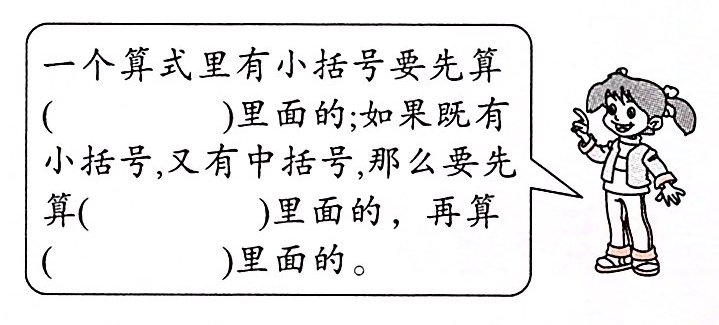 一个算式里有小括号要先算
(          )里面的;如果既有
小括号,又有中括号,那么要先
算(          )里面的，再算
(          )里面的。